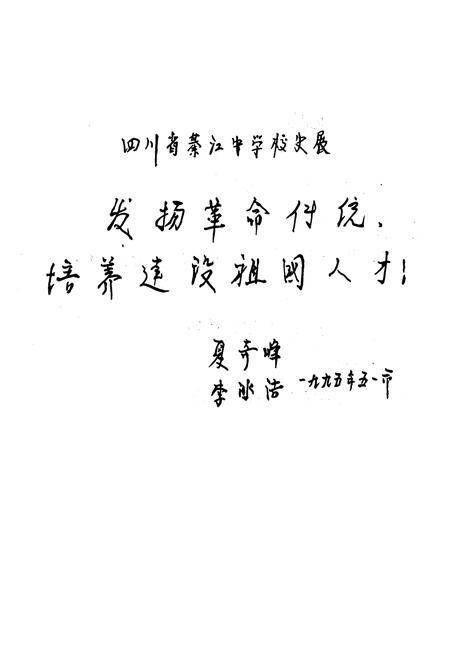 四川省綦江中学校史展
发扬革命传统、
培养建设祖國人才!
夏奇峰
李冰洁 一九九五年五·一节